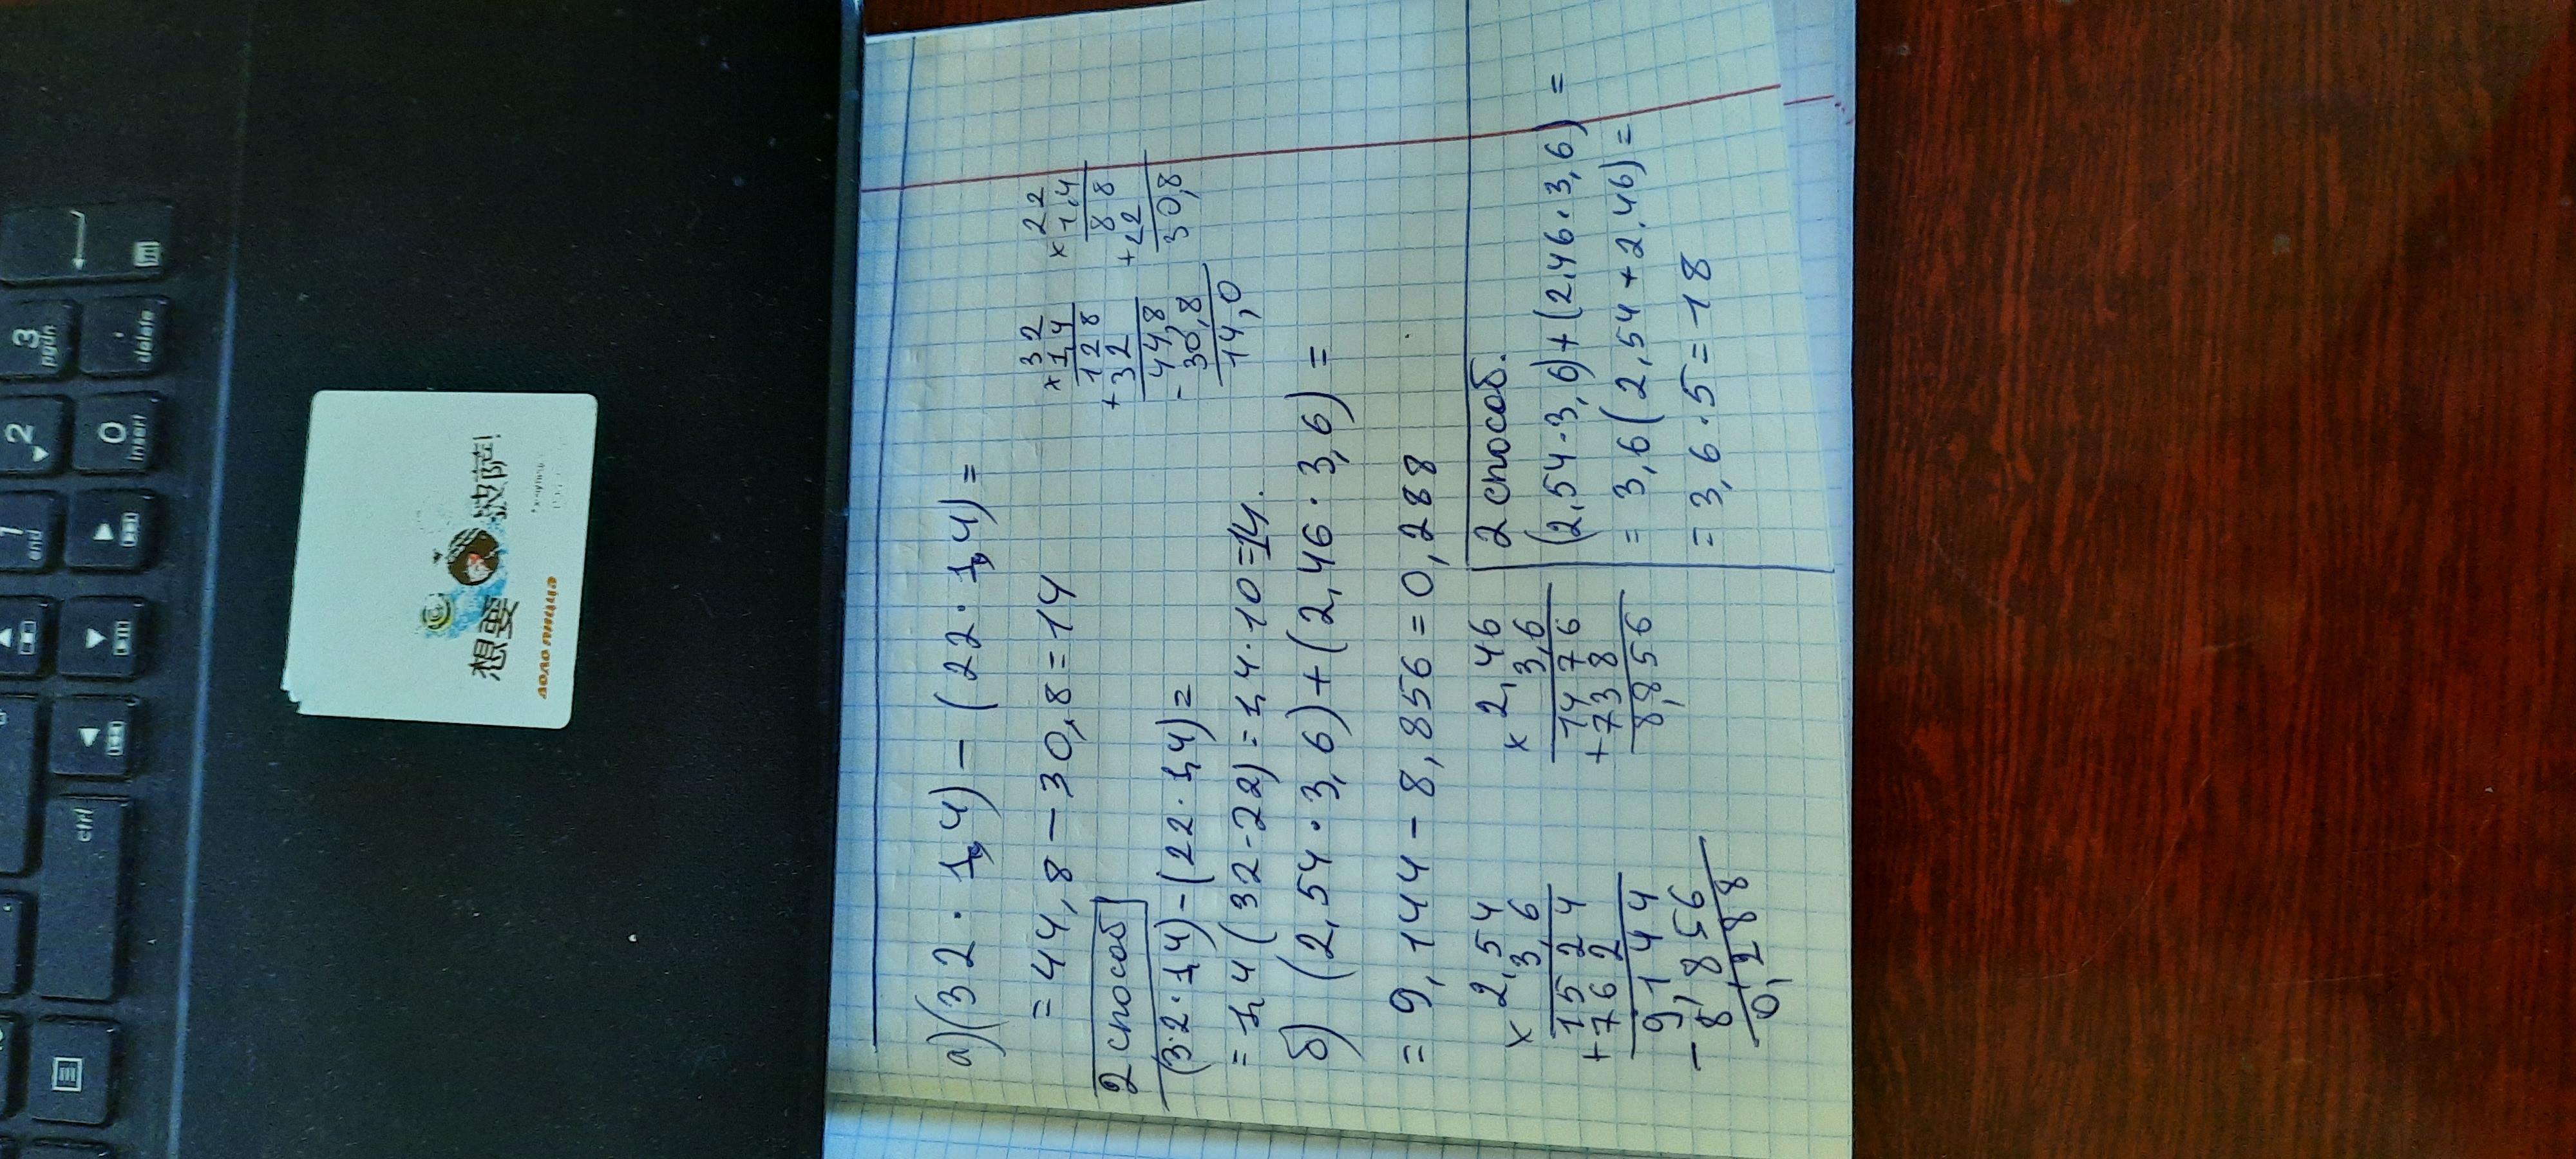 а) (32 · 1,4) – (22 · 1,4) =
= 44,8 – 30,8 = 14
32
× 1,4
128
+ 32
44,8
- 30,8
14,0
22
× 1,4
88
+ 22
30,8
2 способ
(3·2·1,4) – (22·1,4) =
= 1,4 (32-22) = 1,4·10 = 14.
б) (2,54 · 3,6) + (2,46 · 3,6) =
= 9,144 – 8,856 = 0,288
× 2,54
3,6
1524
+ 762
9,144
- 8,856
0,288
× 2,46
3,6
1476
+ 738
8,856
2 способ.
(2,54·3,6) + (2,46·3,6) =
= 3,6 (2,54 + 2,46) =
= 3,6 · 5 = 18
ctrl
1
end
2
3
pgdn
0
insert
.
delete
想要
披萨!